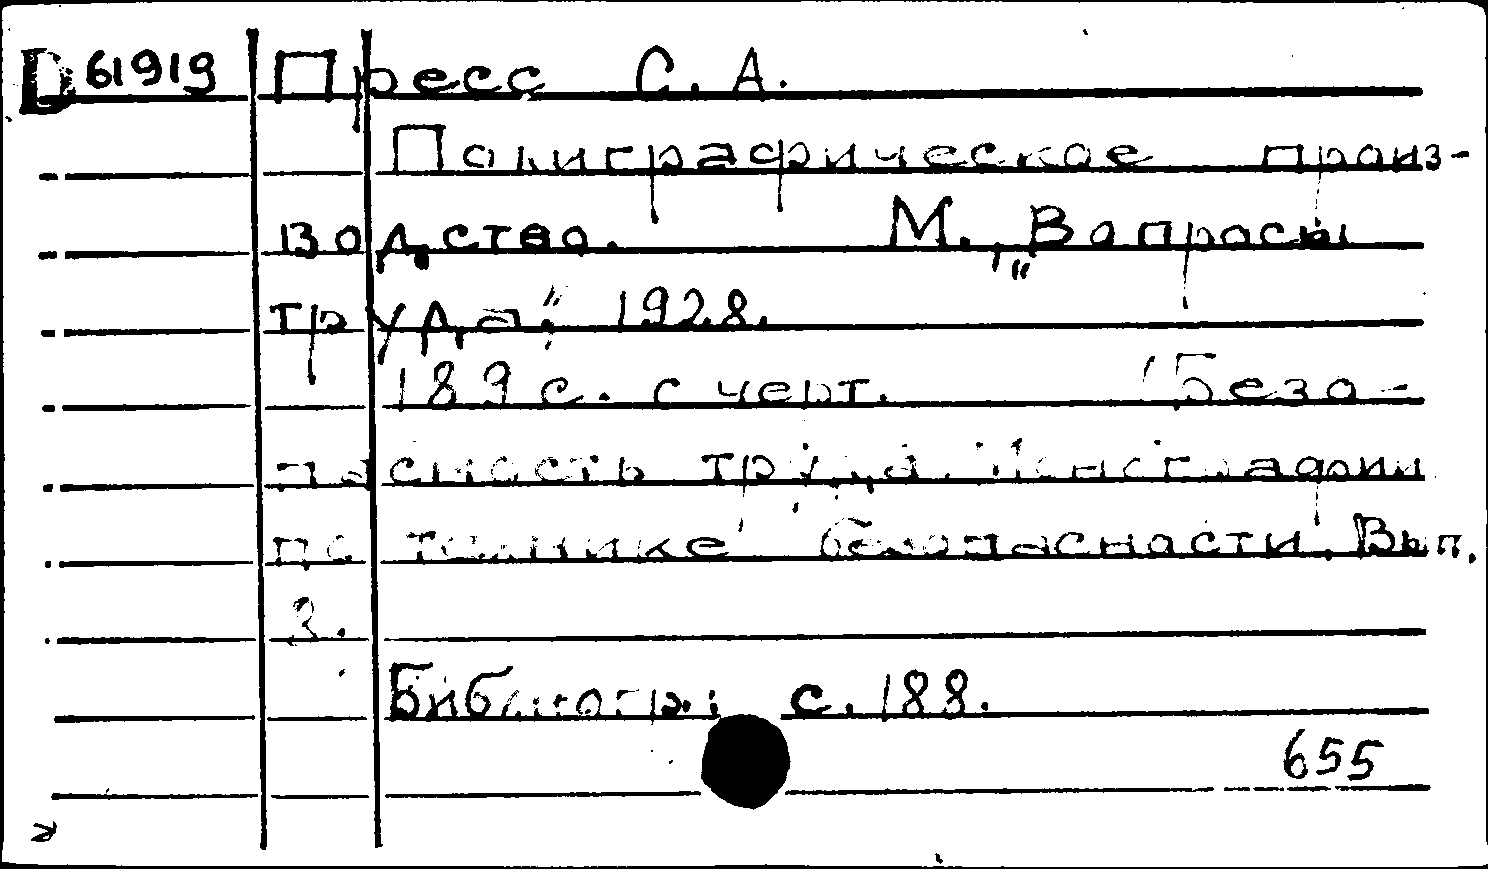 D 61919 Пресс С. А.
Полиграфическое произ-
водство. М., „Вопросы
труда", 1928.
189 с. с черт. (Безо-
пасность труда. Монографии
по технике безопасности. Вып.
3.
Библиогр.: с. 188.
655